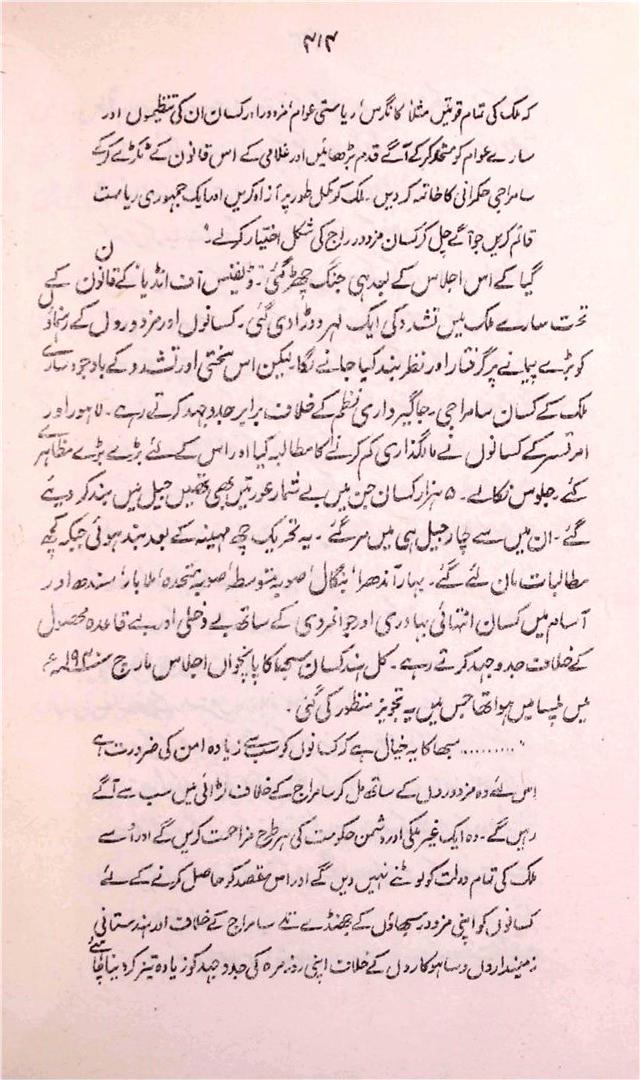 ۳۱۴
کہ ملک کی تمام قوتیں مثلاً کانگرس، ریاستی عوام، مزدور اور کسان ان کی تنظیموں اور
سارے عوام کو متحد کر کے آگے قدم بڑھائیں اور غلامی کے اس قانون کے ٹکڑے کر کے
سامراجی حکمرانی کا خاتمہ کر دیں۔ ملک کو مکمل طور پر آزاد کریں اور ایک جمہوری ریاست
قائم کریں جو آگے چل کر کسان مزدور راج کی شکل اختیار کر لے۔"
گیا کے اس اجلاس کے بعد ہی جنگ چھڑ گئی۔ ڈیفنس آف انڈیا کے قانون کے
تحت سارے ملک میں تشدد کی ایک لہر دوڑا دی گئی۔ کسانوں اور مزدوروں کے رہنماؤں
کو بڑے پیمانے پر گرفتار اور نظر بند کیا جانے لگا لیکن اس سختی اور تشدد کے باوجود سارے
ملک کے کسان سامراجی۔ جاگیرداری نظم کے خلاف برابر جدوجہد کرتے رہے۔ لاہور اور
امرتسر کے کسانوں نے مالگذاری کم کرنے کا مطالبہ کیا اور اس کے لئے بڑے بڑے مظاہرے
کئے۔ جلوس نکالے۔ ۵ ہزار کسان جن میں بے شمار عورتیں بھی تھیں جیل میں بند کر دیئے
گئے۔ ان میں سے چار جیل ہی میں مر گئے۔ یہ تحریک چھ مہینہ کے بعد بند ہوئی جبکہ کچھ
مطالبات مان لئے گئے۔ بہار، آندھرا، بنگال، صوبہ متوسط، صوبہ متحدہ، ملابار، سندھ اور
آسام میں کسان انتہائی بہادری اور جوانمردی کے ساتھ بے دخلی اور بے قاعدہ محصول
کے خلاف جدوجہد کرتے رہے۔ کل ہند کسان سبھا کا پانچواں اجلاس مارچ سنہ ۱۹۴۰ء
میں پلاسا میں ہوا تھا جس میں یہ تجویز منظور کی گئی۔
"......... سبھا کا یہ خیال ہے کہ کسانوں کو سب سے زیادہ امن کی ضرورت ہے
اس لئے وہ مزدوروں کے ساتھ مل کر سامراج کے خلاف لڑائی میں سب سے آگے
رہیں گے۔ وہ ایک غیر ملکی اور دشمن حکومت کی ہر طرح مزاحمت کریں گے اور اُسے
ملک کی تمام دولت کو لوٹنے نہیں دیں گے اور اس مقصد کو حاصل کرنے کے لئے
کسانوں کو اپنی مزدور سبھاؤں کے جھنڈے تلے سامراج کے خلاف اور ہندستانی
زمینداروں و ساہوکاروں کے خلاف اپنی روزمرہ کی جدوجہد کو زیادہ تیز کر دینا چاہئے